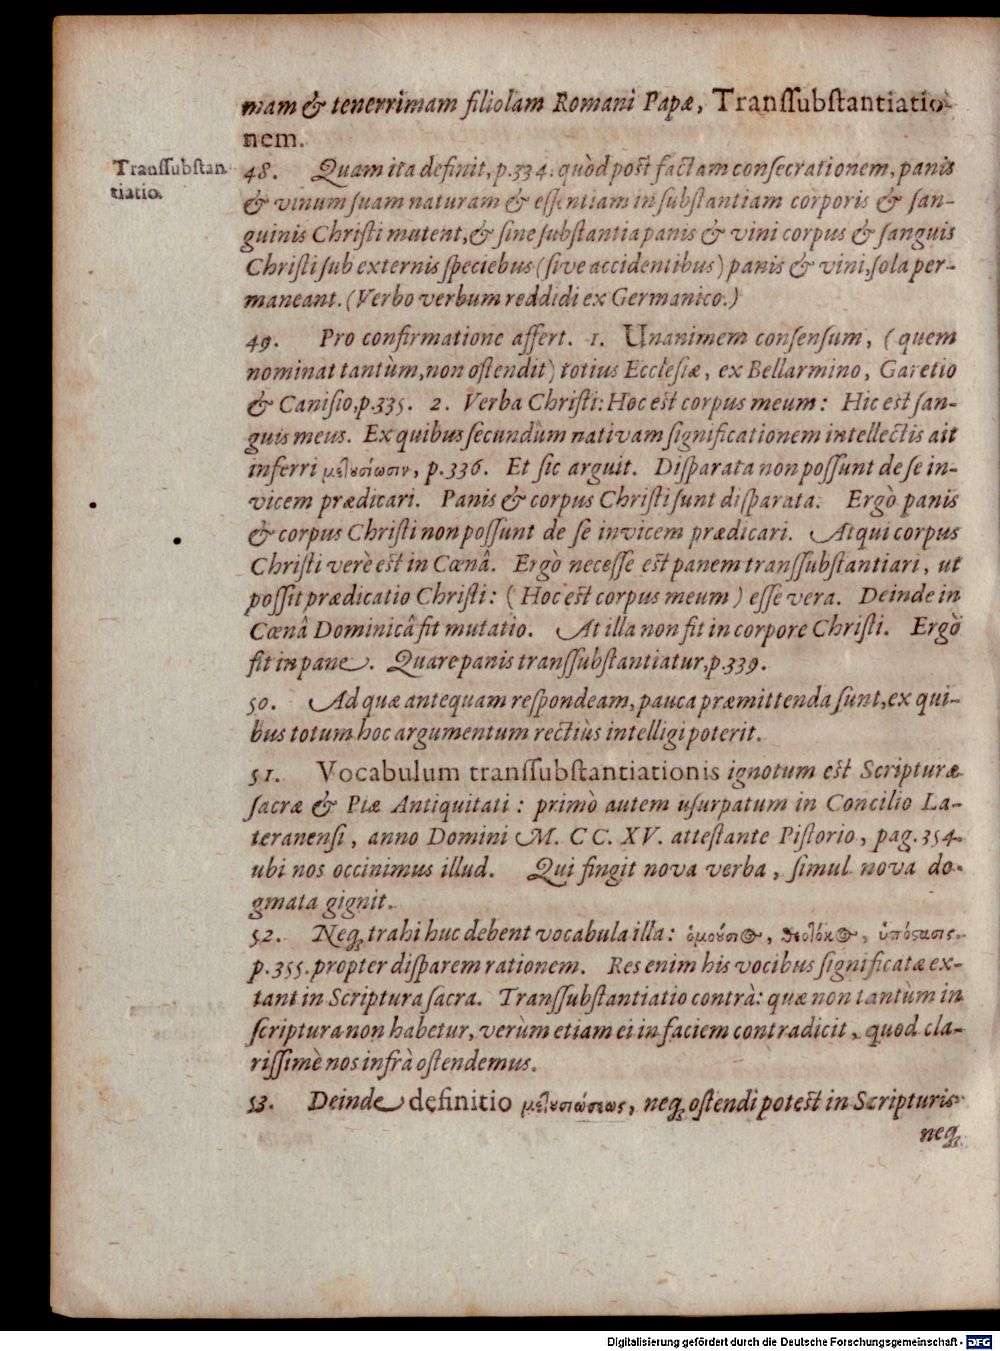 mam & tenerrimam filiolam Romani Papæ, Transſubſtantiatio-
nem.
Transſubſtan
tiatio.
48. Quam ita definit, p.334. quòd poſt factam conſecrationem, panis
& vinum ſuam naturam & eſſentiam in ſubſtantiam corporis & ſan-
guinis Chriſti mutent, & ſine ſubſtantia panis & vini corpus & ſanguis
Chriſti ſub externis ſpeciebus (ſive accidentibus) panis & vini, ſola per-
maneant. (Verbo verbum reddidi ex Germanico.)
49. Pro confirmatione affert. 1. Unanimem conſenſum, (quem
nominat tantùm, non oſtendit) totius Eccleſiæ, ex Bellarmino, Garetio
& Caniſio, p.335. 2. Verba Chriſti: Hoc eſt corpus meum: Hic eſt ſan-
guis meus. Ex quibus ſecundùm nativam ſignificationem intellectis ait
inferri μετουσίωσιν, p.336. Et ſic arguit. Diſparata non poſſunt de ſe in-
vicem prædicari. Panis & corpus Chriſti ſunt diſparata. Ergò panis
& corpus Chriſti non poſſunt de ſe invicem prædicari. Atqui corpus
Chriſti verè eſt in Cœnâ. Ergò neceſſe eſt panem transſubſtantiari, ut
poſſit prædicatio Chriſti: (Hoc eſt corpus meum) eſſe vera. Deinde in
Cœnâ Dominicâ fit mutatio. At illa non fit in corpore Chriſti. Ergò
fit in pane. Quare panis transſubſtantiatur, p.339.
50. Ad quæ antequam reſpondeam, pauca præmittenda ſunt, ex qui-
bus totum hoc argumentum rectiùs intelligi poterit.
51. Vocabulum transſubſtantiationis ignotum eſt Scripturæ
ſacræ & Piæ Antiquitati: primò autem uſurpatum in Concilio La-
teranenſi, anno Domini M. CC. XV. atteſtante Piſtorio, pag. 354.
ubi nos occinimus illud. Qui fingit nova verba, ſimul nova do-
gmata gignit.
52. Neq; trahi huc debent vocabula illa: ὁμούσι⊙, θεοτόκ⊙, ὑπόστασις.
p.355. propter diſparem rationem. Res enim his vocibus ſignificatæ ex-
tant in Scriptura ſacra. Transſubſtantiatio contrà: quæ non tantùm in
ſcriptura non habetur, verùm etiam ei in faciem contradicit, quod cla-
riſſimè nos infrà oſtendemus.
53. Deinde definitio μετουσιώσεως, neq; oſtendi poteſt in Scripturis
neq;
Digitalisierung gefördert durch die Deutsche Forschungsgemeinschaft - DFG